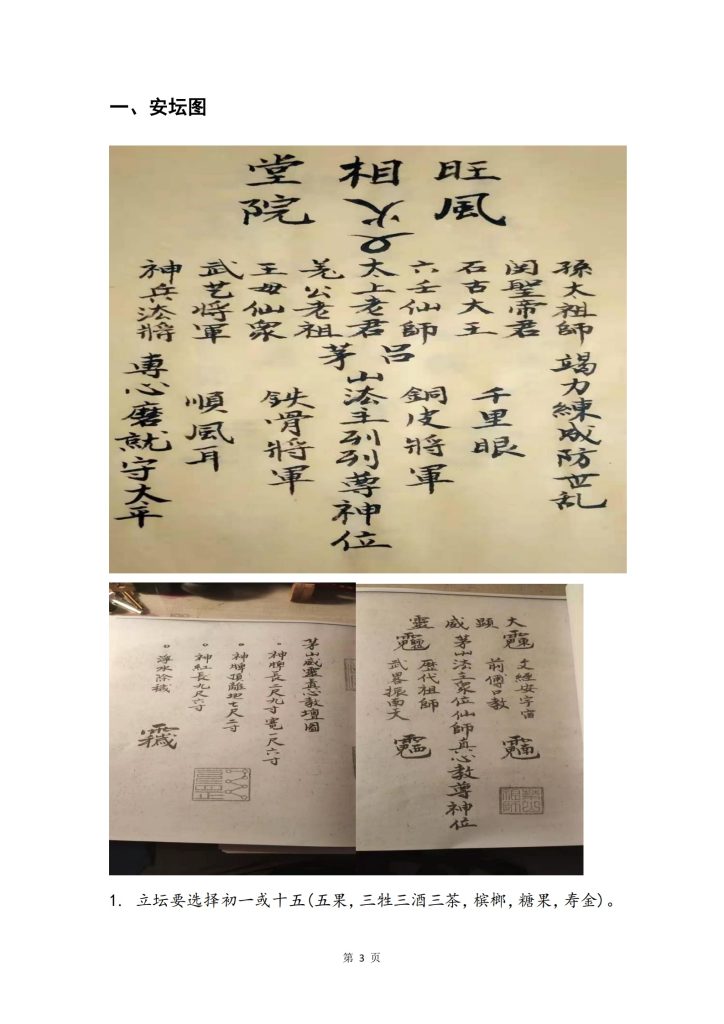 一、安坛图
旺相堂
風火院
孫太祖師
関聖帝君
石古大王
六壬仙師
太上老君
羗公老祖
王母仙眾
武艺將軍
神兵法將
吕茅
竭力練成防世乱
千里眼
銅皮將軍
山法主列列尊神位
鉄骨將軍
順風耳
專心磨就守大平
茅山威靈真心教壇圖
神牌長二尺九寸寬一尺六寸
神牌頂離地七尺二寸
神紅長九尺六寸
淨水除穢
大顯威靈
文經安宇宙
前傳口教
茅山法主眾位仙師真心教尊神位
歷代祖師
武畧振南天
1. 立坛要选择初一或十五(五果,三牲三酒三茶,槟榔,糖果,寿金)。
第 3 页